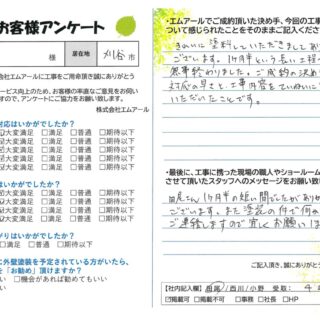 お客様アンケート
様 居住地 刈谷市
株式会社エムアールに工事をご用命頂き誠にありがとう
ービス向上のため、お客様の率直なご意見をお伺い
ますので、アンケートにご協力をお願い致します。
株式会社エムアール
対応はいかがでしたか?
大変満足 □満足 □普通 □期待以下
大変満足 □満足 □普通 □期待以下
大変満足 □満足 □普通 □期待以下
はいかがでしたか?
大変満足 □満足 □普通 □期待以下
大変満足 □満足 □普通 □期待以下
大変満足 □満足 □普通 □期待以下
がりはいかがでしたか?
□満足 □普通 □期待以下
に外壁塗装を予定されている方がいたら、
を「お勧め」頂けますか?
い □機会があれば勧めてもいい
い
・エムアールでご成約頂いた決め手、今回の工事
ついて感じられたことをそのままご記入ください
きれいに塗料していただきまして
ございます。1ヶ月半という長い工程
無事終わりました。ご成約の決め
対応の早さと、工事内容を
いただいたことです。
・最後に、工事に携った現場の職人やショールーム
させて頂いたスタッフへのメッセージをお願い致
さん 1ヶ月半の短い間でしたが
ございます。また塗装の件で何か
ご連絡しますので宜しくお願い
ご記入頂き、誠にありがとう
【社内記入欄】 /西川/小野 受取: 4
☑掲載可 □掲載不可 □事務 □社長 □HP